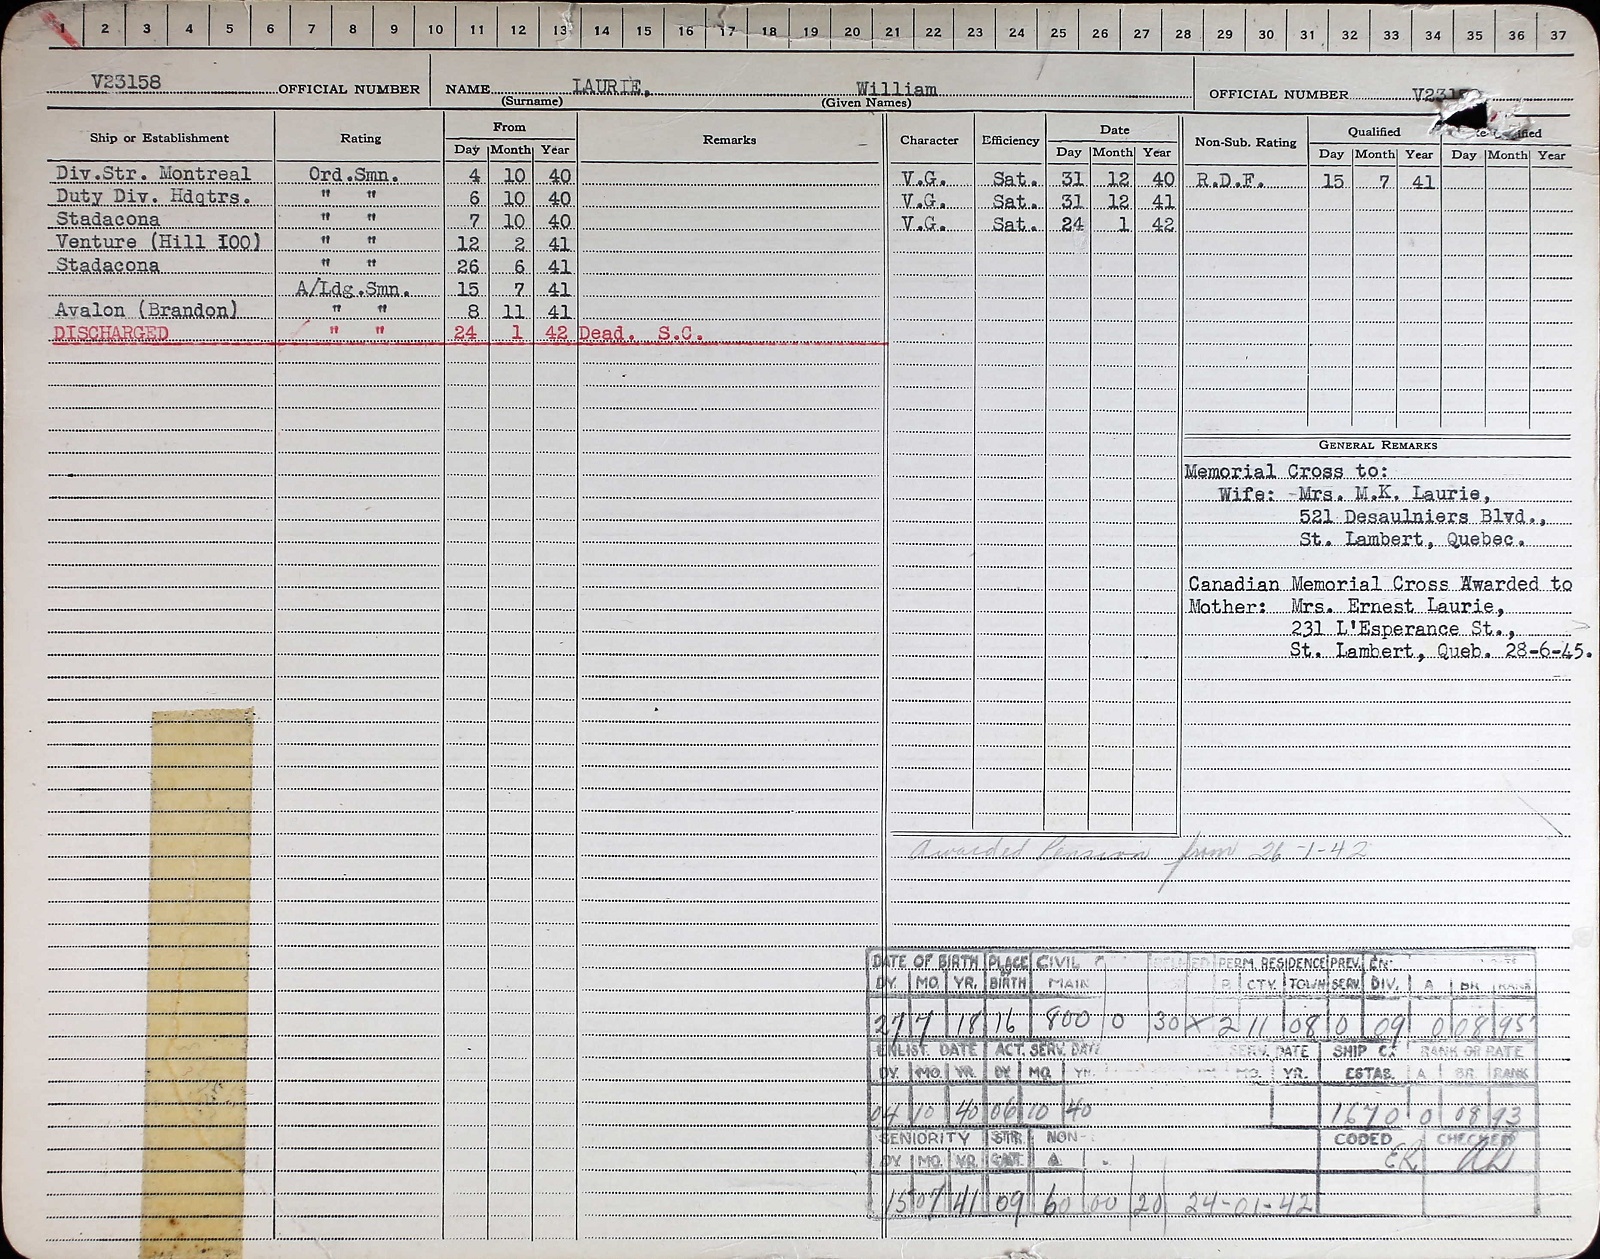 1 2 3 4 5 6 7 8 9 10 11 12 13 14 15 16 17 18 19 20 21 22 23 24 25 26 27 28 29 30 31 32 33 34 35 36 37
V23158 OFFICIAL NUMBER NAME LAURIE, William OFFICIAL NUMBER
(Surname) (Given Names)
Ship or Establishment Rating From Remarks Character Efficiency Date Non-Sub. Rating Qualified
Day Month Year Day Month Year Day Month Year Day Month Year
Div.Str. Montreal Ord.Smn. 4 10 40 V.G. Sat. 31 12 40 R.D.F. 15 7 41
Duty Div. Hdqtrs. " " 6 10 40 V.G. Sat. 31 12 41
Stadacona " " 7 10 40 V.G. Sat. 24 1 42
Venture (Hill 100) " " 12 2 41
Stadacona " " 26 6 41
A/Ldg.Smn. 15 7 41
Avalon (Brandon) " " 8 11 41
DISCHARGED " " 24 1 42 Dead. S.C.
GENERAL REMARKS
Memorial Cross to:
Wife: - Mrs. M.K. Laurie,
521 Desaulniers Blvd.,
St. Lambert, Quebec.
Canadian Memorial Cross Awarded to
Mother: Mrs. Ernest Laurie,
231 L'Esperance St.,
St. Lambert, Queb. 28-6-45.
Awarded Pension from 26-1-42
DATE OF BIRTH PLACE OF BIRTH CIVIL PERM. RESIDENCE PREV. SERV.
DY. MO. YR. MAIN CTY. TOWN DIV. A BR. RANK
27 7 18 16 800 0 30 X 2 11 08 0 09 0 08 95
ENLIST. DATE ACT. SERV. DATE SERV. DATE SHIP RANK OR RATE
DY. MO. YR. DY MO. YR. MO. YR. ESTAB. A BR. RANK
04 10 40 06 10 40 1670 0 08 93
SENIORITY STR. NON- CODED CHECKED
DY. MO. YR. CAT. A ER
15 07 41 09 60 00 20 24-01-42